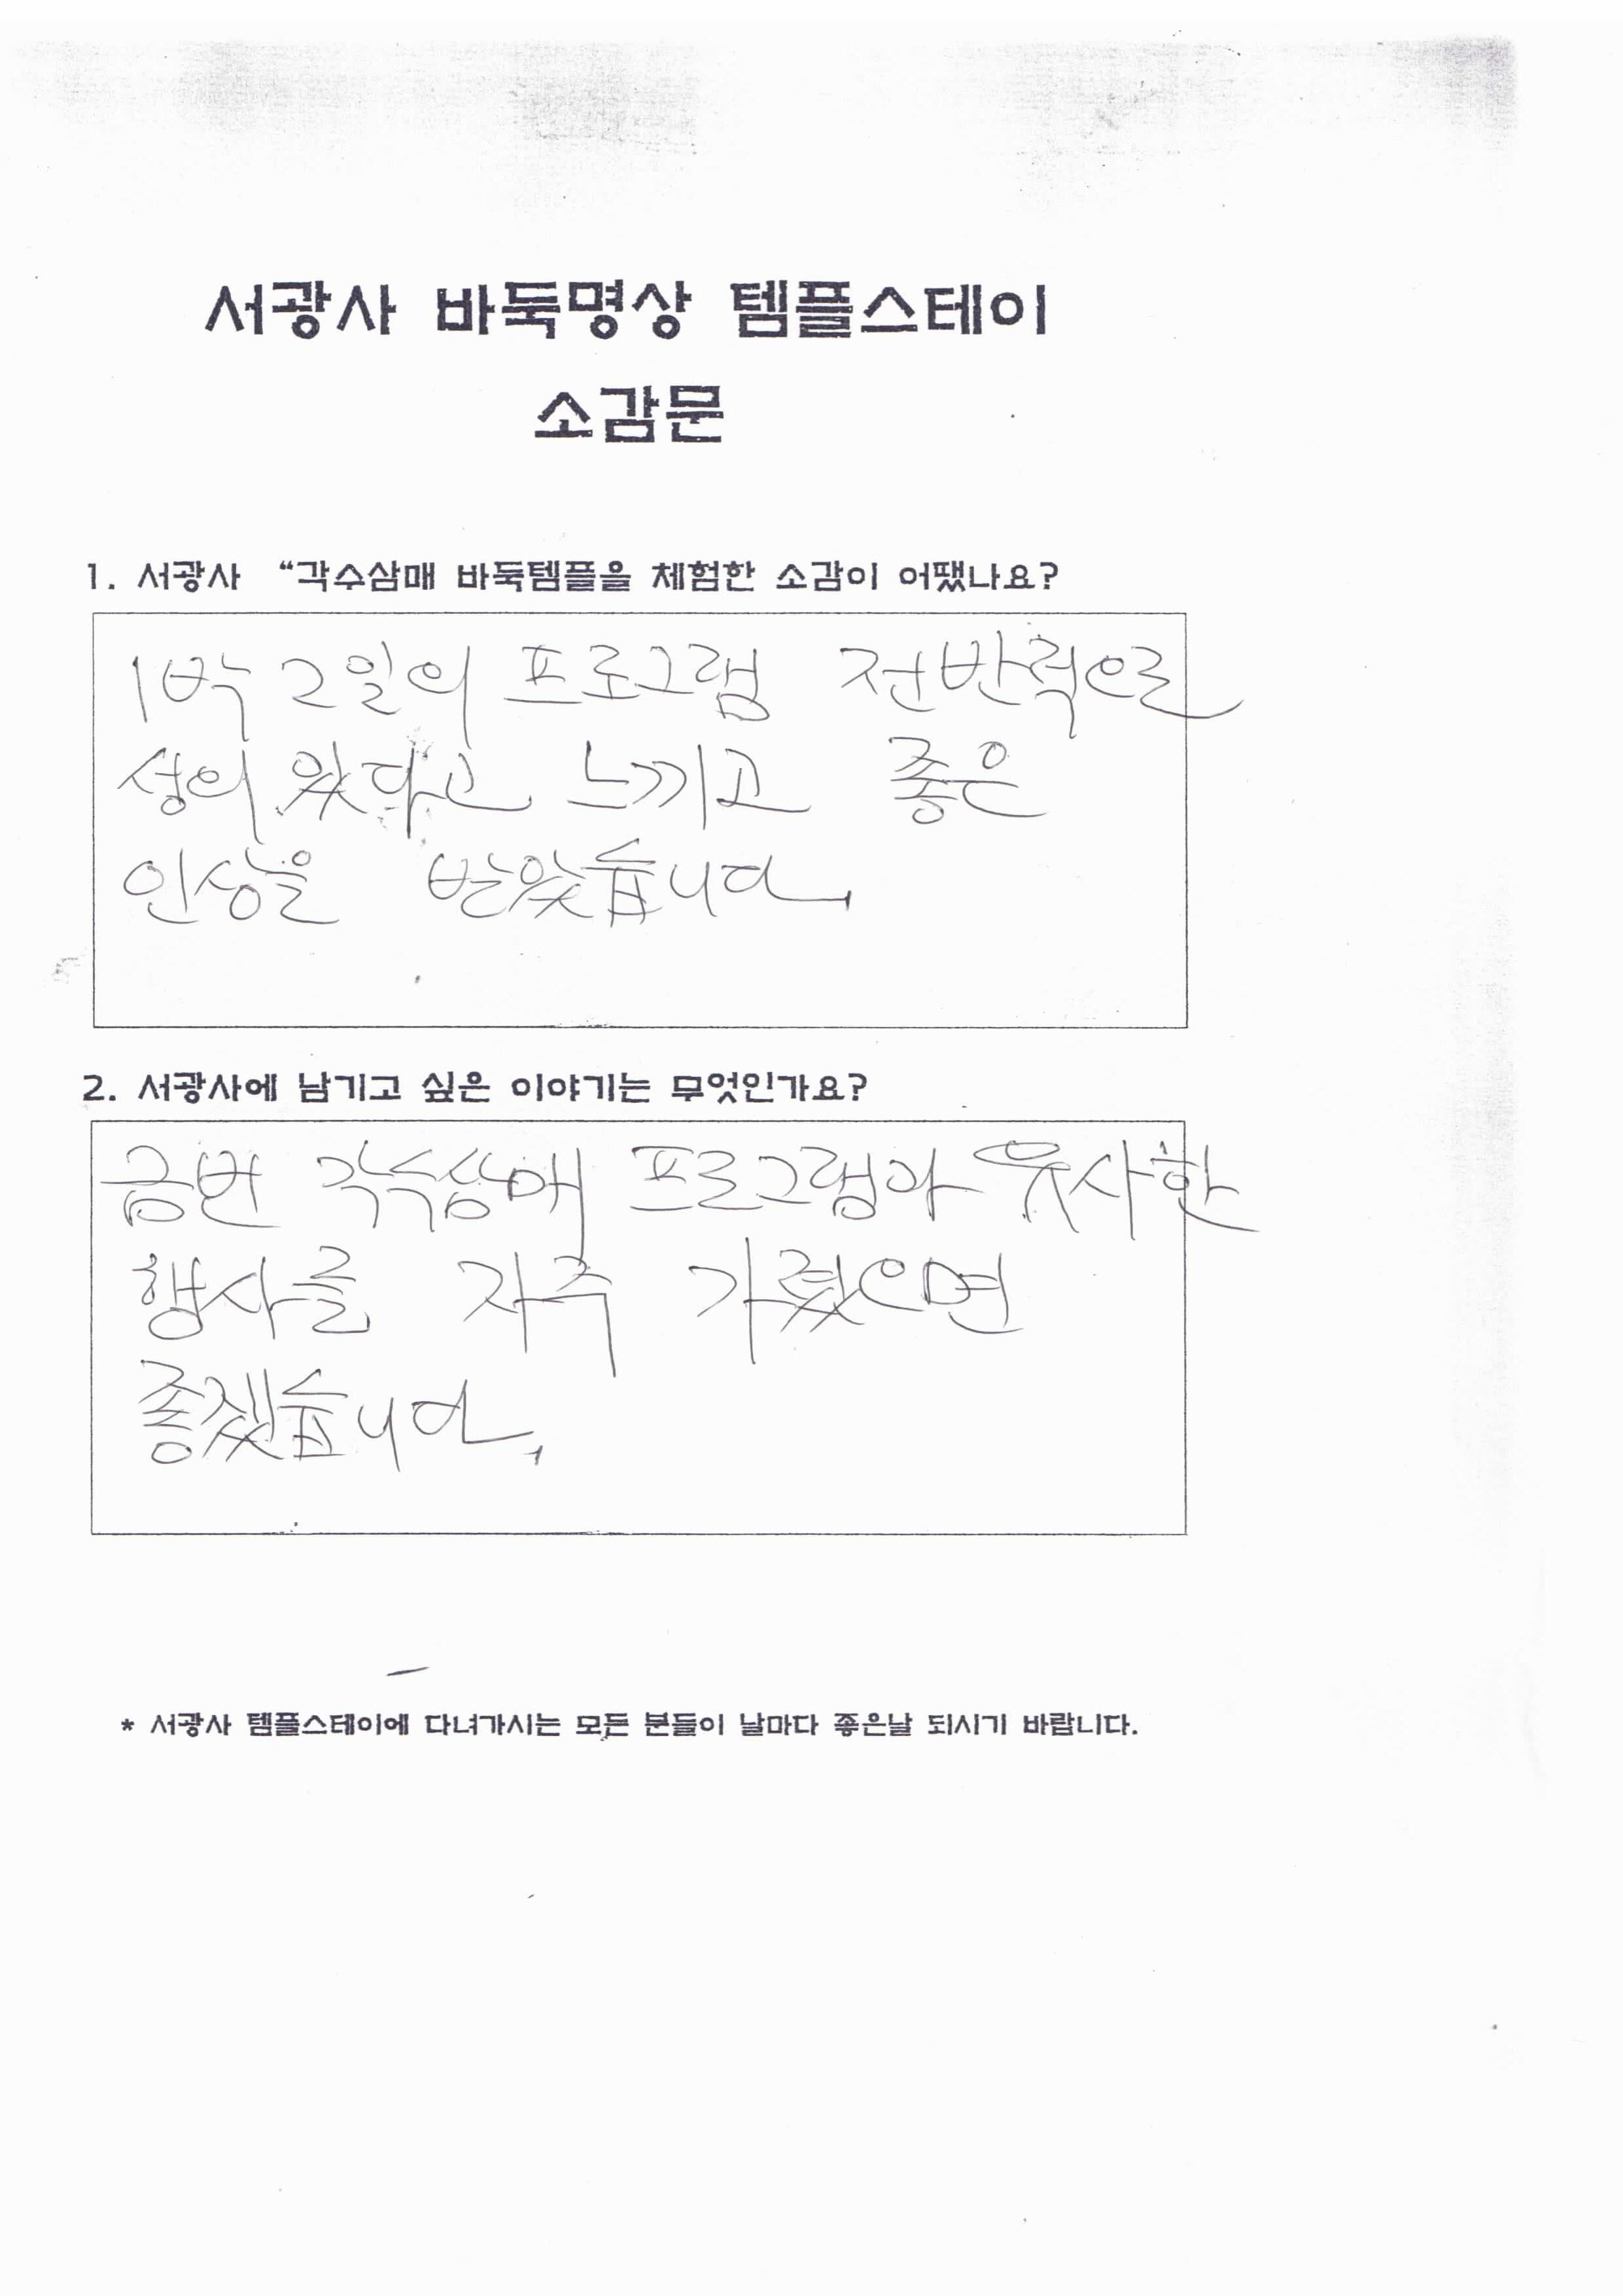 서광사 바둑명상 템플스테이
소감문
1. 서광사 “각수삼매 바둑템플을 체험한 소감이 어땠나요?
1박 2일의 프로그램 전반적으로
성의 있다고 느끼고 좋은
인상을 받았습니다.
2. 서광사에 남기고 싶은 이야기는 무엇인가요?
금번 각수삼매 프로그램과 유사한
행사를 자주 가졌으면
좋겠습니다.
* 서광사 템플스테이에 다녀가시는 모든 분들이 날마다 좋은날 되시기 바랍니다.